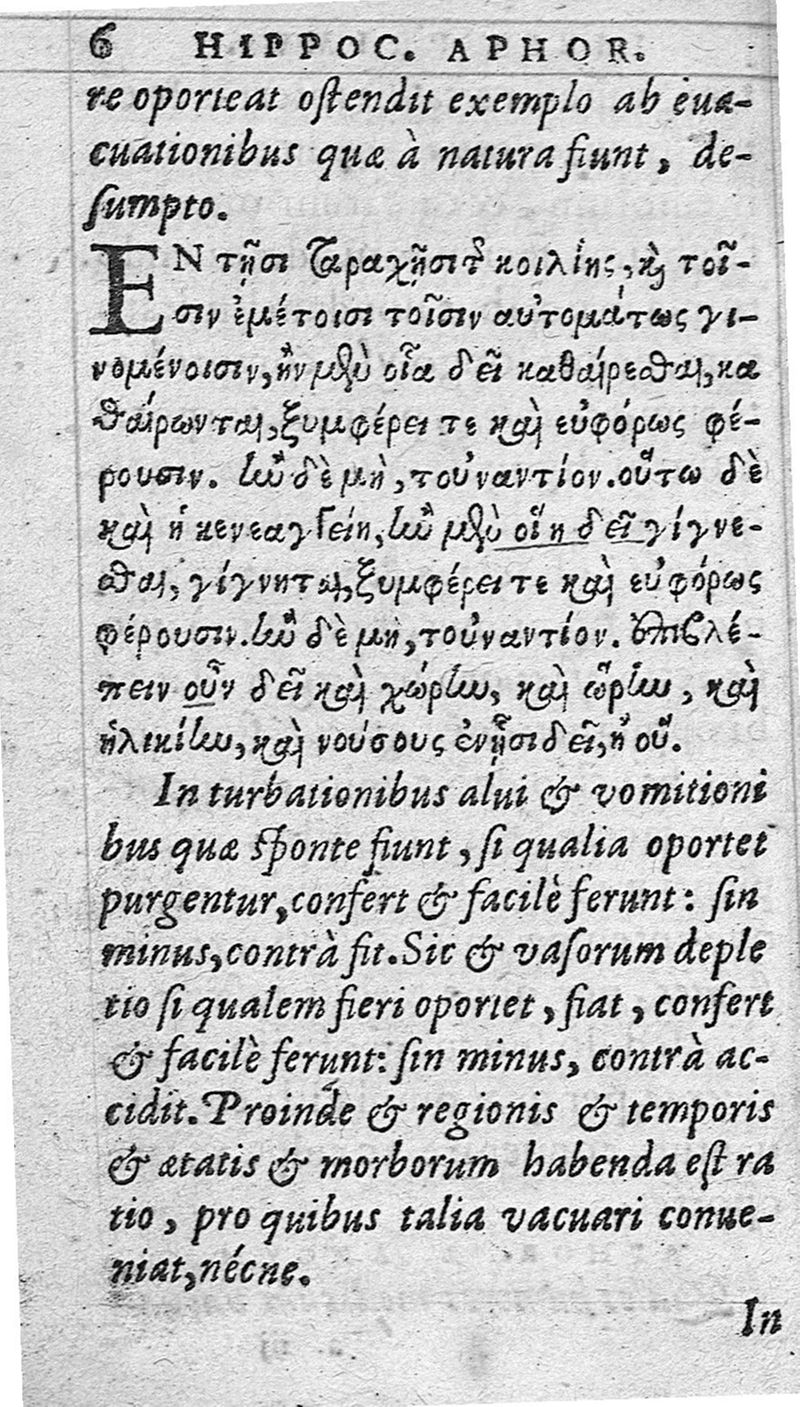 6 HIPPOC. APHOR.
re oporteat ostendit exemplo ab eua-
cuationibus quæ à natura fiunt, de-
sumpto.
ΕΝ τῇσι ταραχῇσι τ͂ κοιλίης, ϗ̀ τοῖ-
σιν ἐμέτοισι τοῖσιν αὐτομάτως γι-
νομένοισιν, ἢν μὲν οἷα δεῖ καθαίρεσθαι, κα
θαίρωνται, ξυμφέρει τε καὶ εὐφόρως φέ-
ρουσιν. ἢν δὲ μὴ, τοὐναντίον. οὕτω δὲ
καὶ ἡ κενεαγγείη, ἢν μὲν οἵη δεῖ γίγνε-
σθαι, γίγνηται, ξυμφέρει τε καὶ εὐφόρως
φέρουσιν. ἢν δὲ μὴ, τοὐναντίον. ἐπιβλέ-
πειν οὖν δεῖ καὶ χώρην, καὶ ὥρην, καὶ
ἡλικίην, καὶ νούσους ἐν ᾗσι δεῖ, ἢ οὔ.
In turbationibus alui & vomitioni
bus quæ sponte fiunt, si qualia oportet
purgentur, confert & facilè ferunt: sin
minus, contrà fit. Sic & vasorum deple
tio si qualem fieri oportet, fiat, confert
& facilè ferunt: sin minus, contrà ac-
cidit. Proinde & regionis & temporis
& ætatis & morborum habenda est ra
tio, pro quibus talia vacuari conue-
niat, nécne.
In